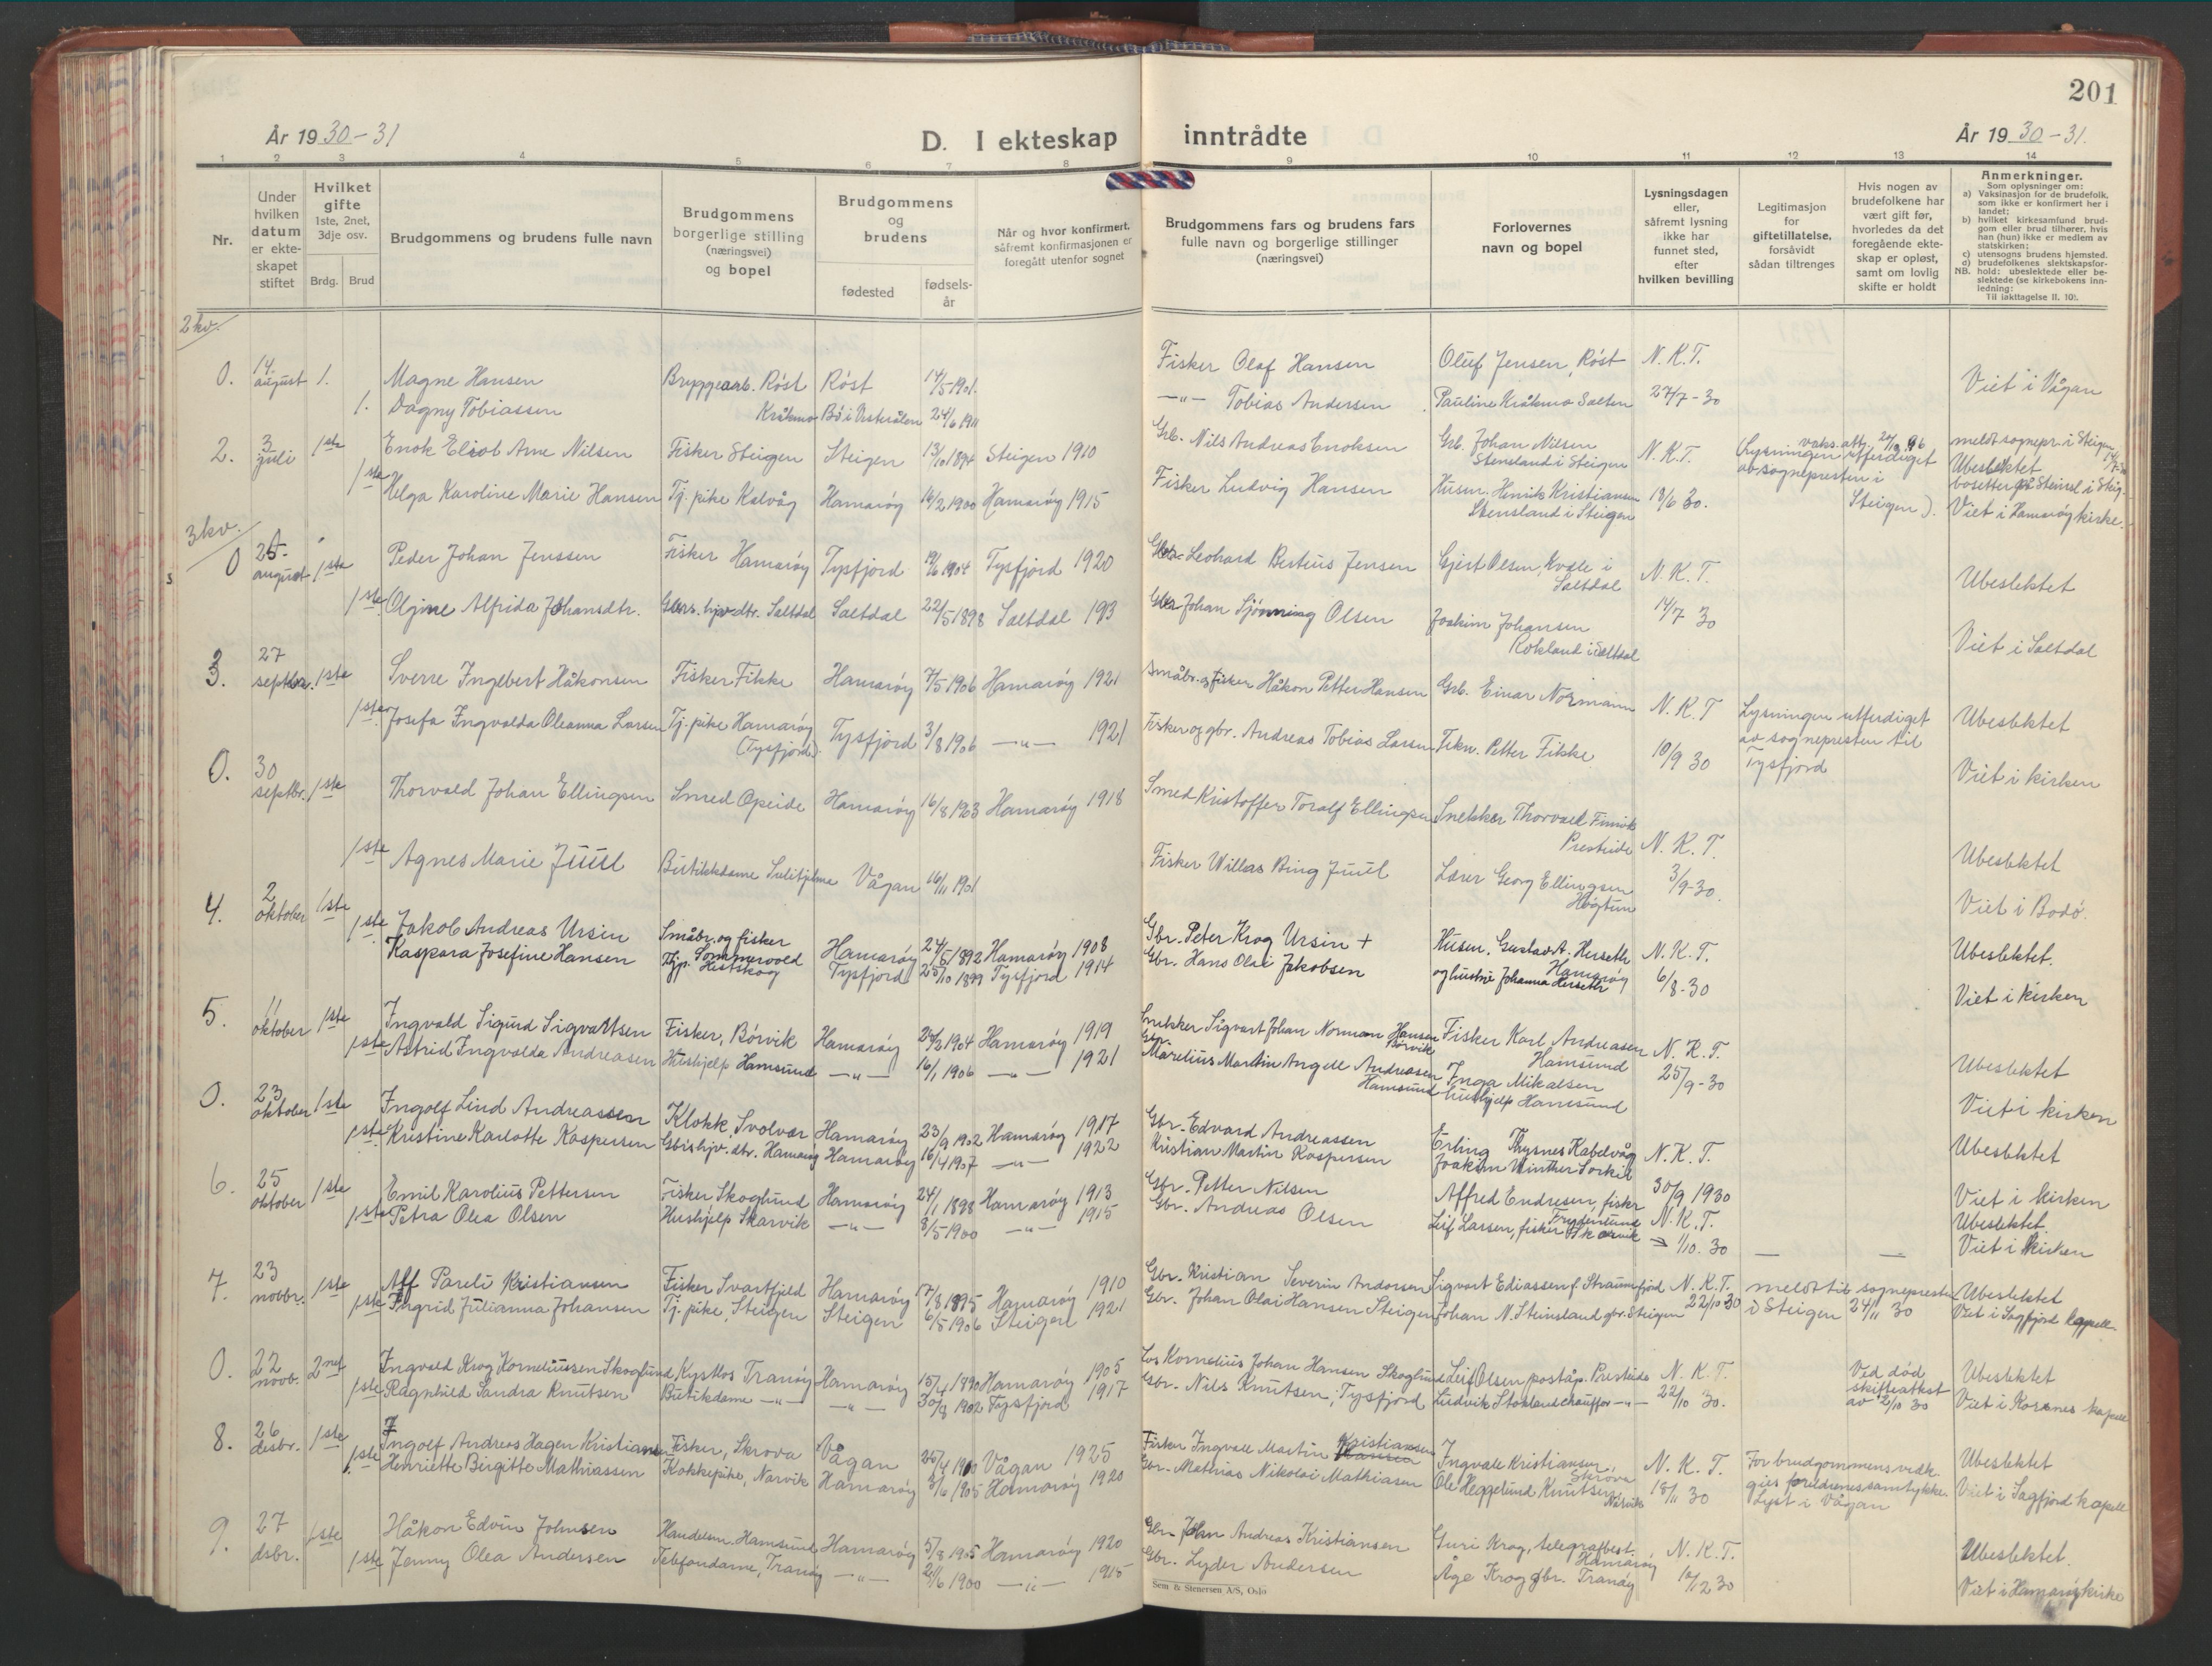 201
År 1930-31
D. I ekteskap inntrådte
År 1930-31.
1 2 3 4 5 6 7 8 9 10 11 12 13 14
Nr.
Under hvilken datum er ekteskapet stiftet
Hvilket gifte 1ste, 2net, 3dje osv.
Brdg. Brud
Brudgommens og brudens fulle navn
Brudgommens borgerlige stilling (næringsvei) og bopel
Brudgommens og brudens
fødested
fødselsår
Når og hvor konfirmert, såfremt konfirmasjonen er foregått utenfor sognet
Brudgommens fars og brudens fars fulle navn og borgerlige stillinger (næringsvei)
Forlovernes navn og bopel
Lysningsdagen eller, såfremt lysning ikke har funnet sted, efter hvilken bevilling
Legitimasjon for giftetillatelse, forsåvidt sådan tiltrenges
Hvis nogen av brudefolkene har vært gift før, hvorledes da det foregående ekteskap er opløst, samt om lovlig skifte er holdt
Anmerkninger.
Som oplysninger om:
a) Vaksinasjon for de brudefolk, som ikke er konfirmert her i landet;
b) hvilket kirkesamfund brudgom eller brud tilhører, hvis han (hun) ikke er medlem av statskirken;
c) utensogns brudens hjemsted.
d) brudefolkenes slektskapsforhold: ubeslektede eller beslektede (se kirkebokens innledning:
NB.
Til iakttagelse II. 10).
2 kv.
0. 14. august 1. Magne Hansen Bryggearb. Røst Røst 14/5 1901. Fisker Olaf Hansen Oluf Jensen, Røst N.K.T. Viet i Vågan
1. Dagny Tobiassen Kråkmo Bø i Vesterålen 24/6 1911 —"— Tobias Andersen Pauline Kråkmo Salten 27/7-30
2. 3 juli 1ste Enok Eliot Arne Nilsen Fisker Steigen Steigen 13/10 1894 Steigen 1910 Grb. Nils Andreas Enoksen Grb. Johan Nilsen Stensland i Steigen N.K.T. (Lysningen utferdiget av sognepresten i Steigen). vaks. att. 20/9 96 meldt sognepr. i Steigen Ubeslektet
1ste Helga Karoline Marie Hansen Tj. pike Kalvåg Hamarøy 16/2 1900 Hamarøy 1915 Fisker Ludvig Hansen Husm. Henrik Kristiansen Stensland i Steigen 18/6 30. bosetter på Steinsl. i Steig. Viet i Hamarøy kirke.
3 kv.
0 25. august 1ste Peder Johan Jenssen Fisker Hamarøy Tysfjord 19/6 1904 Tysfjord 1920 Leohard Bertius Jensen Gjert Olsen, Kvæle i Saltdal N.K.T. Ubeslektet
1ste Oljine Alfrida Johansdtr. Gbrs. hjv. dtr. Saltdal Saltdal 22/5 1898 Saltdal 1913 Gbr. Johan Sjønning Olsen Joakim Johansen Rokland i Saltdal 14/7 30 Viet i Saltdal
3. 27 septbr. 1ste Sverre Ingebert Håkonsen Fisker Fikke Hamarøy 7/5 1906 Hamarøy 1921 Småbr. og fisker Håkon Petter Hansen Grb. Einar Normann N.K.T Lysningen utferdiget av sognepresten til Tysfjord Ubeslektet
1ste Josefa Ingvalda Oleanna Larsen Tj. pike Hamarøy (Tysfjord). Tysfjord 3/8 1906 —"— 1921 Fisker og gbr. Andreas Tobias Larsen Petter Fikke 10/9 30 Viet i kirken
0. 30 septbr. 1ste Thorvald Johan Ellingsen Smed Opeide Hamarøy 16/8 1903 Hamarøy 1918 Smed Kristoffer Toralf Ellingsen Snekker Thorvald Finvik Presteide N.K.T. Ubeslektet
1ste Agnes Marie Juul Butikkdame Sulitjelma Vågan 16/11 1901 Fisker Willas Bing Juul Lærer Georg Ellingsen Høgtun 3/9-30. Viet i Bodø.
4. 2 oktober 1ste Jakob Andreas Ursin Småbr. og fisker Sommervold Hamarøy 24/5 1892 Hamarøy 1908 Gbr. Peter Krog Ursin + Husm. Gustav A. Herseth Hamarøy N.K.T. Ubeslektet.
1ste Kaspara Josefine Hansen Tysfjord 25/10 1899 Tysfjord 1914 Gbr. Hans Olai Jakobsen og hustru Johanna Herseth 6/8-30 Viet i kirken
5. 11 oktober 1ste Ingvald Sigurd Sigvartsen Fisker, Børvik Hamarøy 24/2 1904 Hamarøy 1919 Snekker Sigvart Johan Norman Hansen Børvik Fisker Karl Andreasen Hamsund N.K.T. Ubeslektet
1ste Astrid Ingvalda Andreasen Hushjelp Hamsund —"— 16/1 1906 —"— 1921 Gbr. Marelius Martin Angell Andreasen Hamsund Inga Mikalsen hushjelp Hamsund 25/9-30 Viet i kirken
0. 23 oktober 1ste Ingolf Lind Andreassen Klokk, Svolvær Hamarøy 23/9 1902 Hamarøy 1917 Gbr. Edvard Andreassen Erling Thysnes Kabelvåg N.K.T. Ubeslektet
1ste Kristine Karlotte Kaspersen Gbrs hjv. dtr. Hamarøy Hamarøy 16/4 1907 —"— 1922 Kristian Martin Kaspersen Joakim Winther Sorkil 30/9 1930 Viet i kirken
6. 25 oktober 1ste Emil Karolius Pettersen Fisker Skoglund Hamarøy 24/1 1898 Hamarøy 1913 Gbr. Petter Nilsen Alfred Endresen, fisker Frydenlund N.K.T. Ubeslektet
1ste Petra Olea Olsen Hushjelp Skarvik —"— 8/5 1900 —"— 1915 Gbr. Andreas Olsen Leif Larsen, fisker Skarvik 1/10.30 — — Viet i kirken
7. 23 novbr. 1ste Alf Pareli Kristiansen Fisker Svartfjeld Hamarøy 17/8 1895 Hamarøy 1910 Gbr. Kristian Severin Andorsen Sigvart Ediassen f. Straumfjord N.K.T. meldt til sognepresten i Steigen 24/11 30 Ubeslektet
1ste Ingrid Julianna Johansen Tj. pike, Steigen Steigen 6/5 1906 Steigen 1921 Gbr. Johan Olai Hansen Steigen Johan N. Steinsland gbr. Steigen 22/10 30 Viet i Sagfjord kapell.
0. 22 novb. 2net Ingvald Krog Korneliussen Skoglund Kystlos Tranøy Hamarøy 15/4 1890 Hamarøy 1905 Los Kornelius Johan Hansen Skoglund Leif Olsen poståp. Presteide N.K.T. Ved død skifteattest av 2/10 30 Ubeslektet
1ste Ragnhild Sandra Knutsen Butikdame —"— —"— 30/8 1902 Tysfjord 1917 Gbr. Nils Knutsen, Tysfjord Ludvik Stokland chauffør —"— 22/10 30. Viet i Korsnes kapell
8. 26 desbr. 1ste Ingolf Andreas Hagen Kristiansen Fisker, Skrova Vågan 25/4 1910 Vågan 1925 Fisker Ingvald Martin Kristiansen Ingvald Kristiansen Skrova N.K.T. For brudgommens vedk. gies foreldrenes samtykke. Lyst i Vågan Ubeslektet
1ste Henriette Birgitte Mathiassen Kokkepike, Narvik Hamarøy 3/6 1905 Hamarøy 1920 Gbr. Mathias Nikolai Mathiasen Ole Heggelund Knutsen Narvik 18/11 30 Viet i Sagfjord kapell
9. 27 dsbr. 1ste Håkon Edvin Johnsen Handelsm. Hamsund Hamarøy 5/8 1905 Hamarøy 1920 Gbr. John Andreas Kristiansen Guri Krog, telegrafbest. Hamarøy N.K.T. Ubeslektet.
1ste Jenny Olea Andersen Telefondame, Tranøy —"— 21/6 1900 —"— 1915 Gbr. Lyder Andersen Åge Krog gbr. Tranøy 10/12 30 Viet i Hamarøy kirke
Sem & Stenersen A/S, Oslo